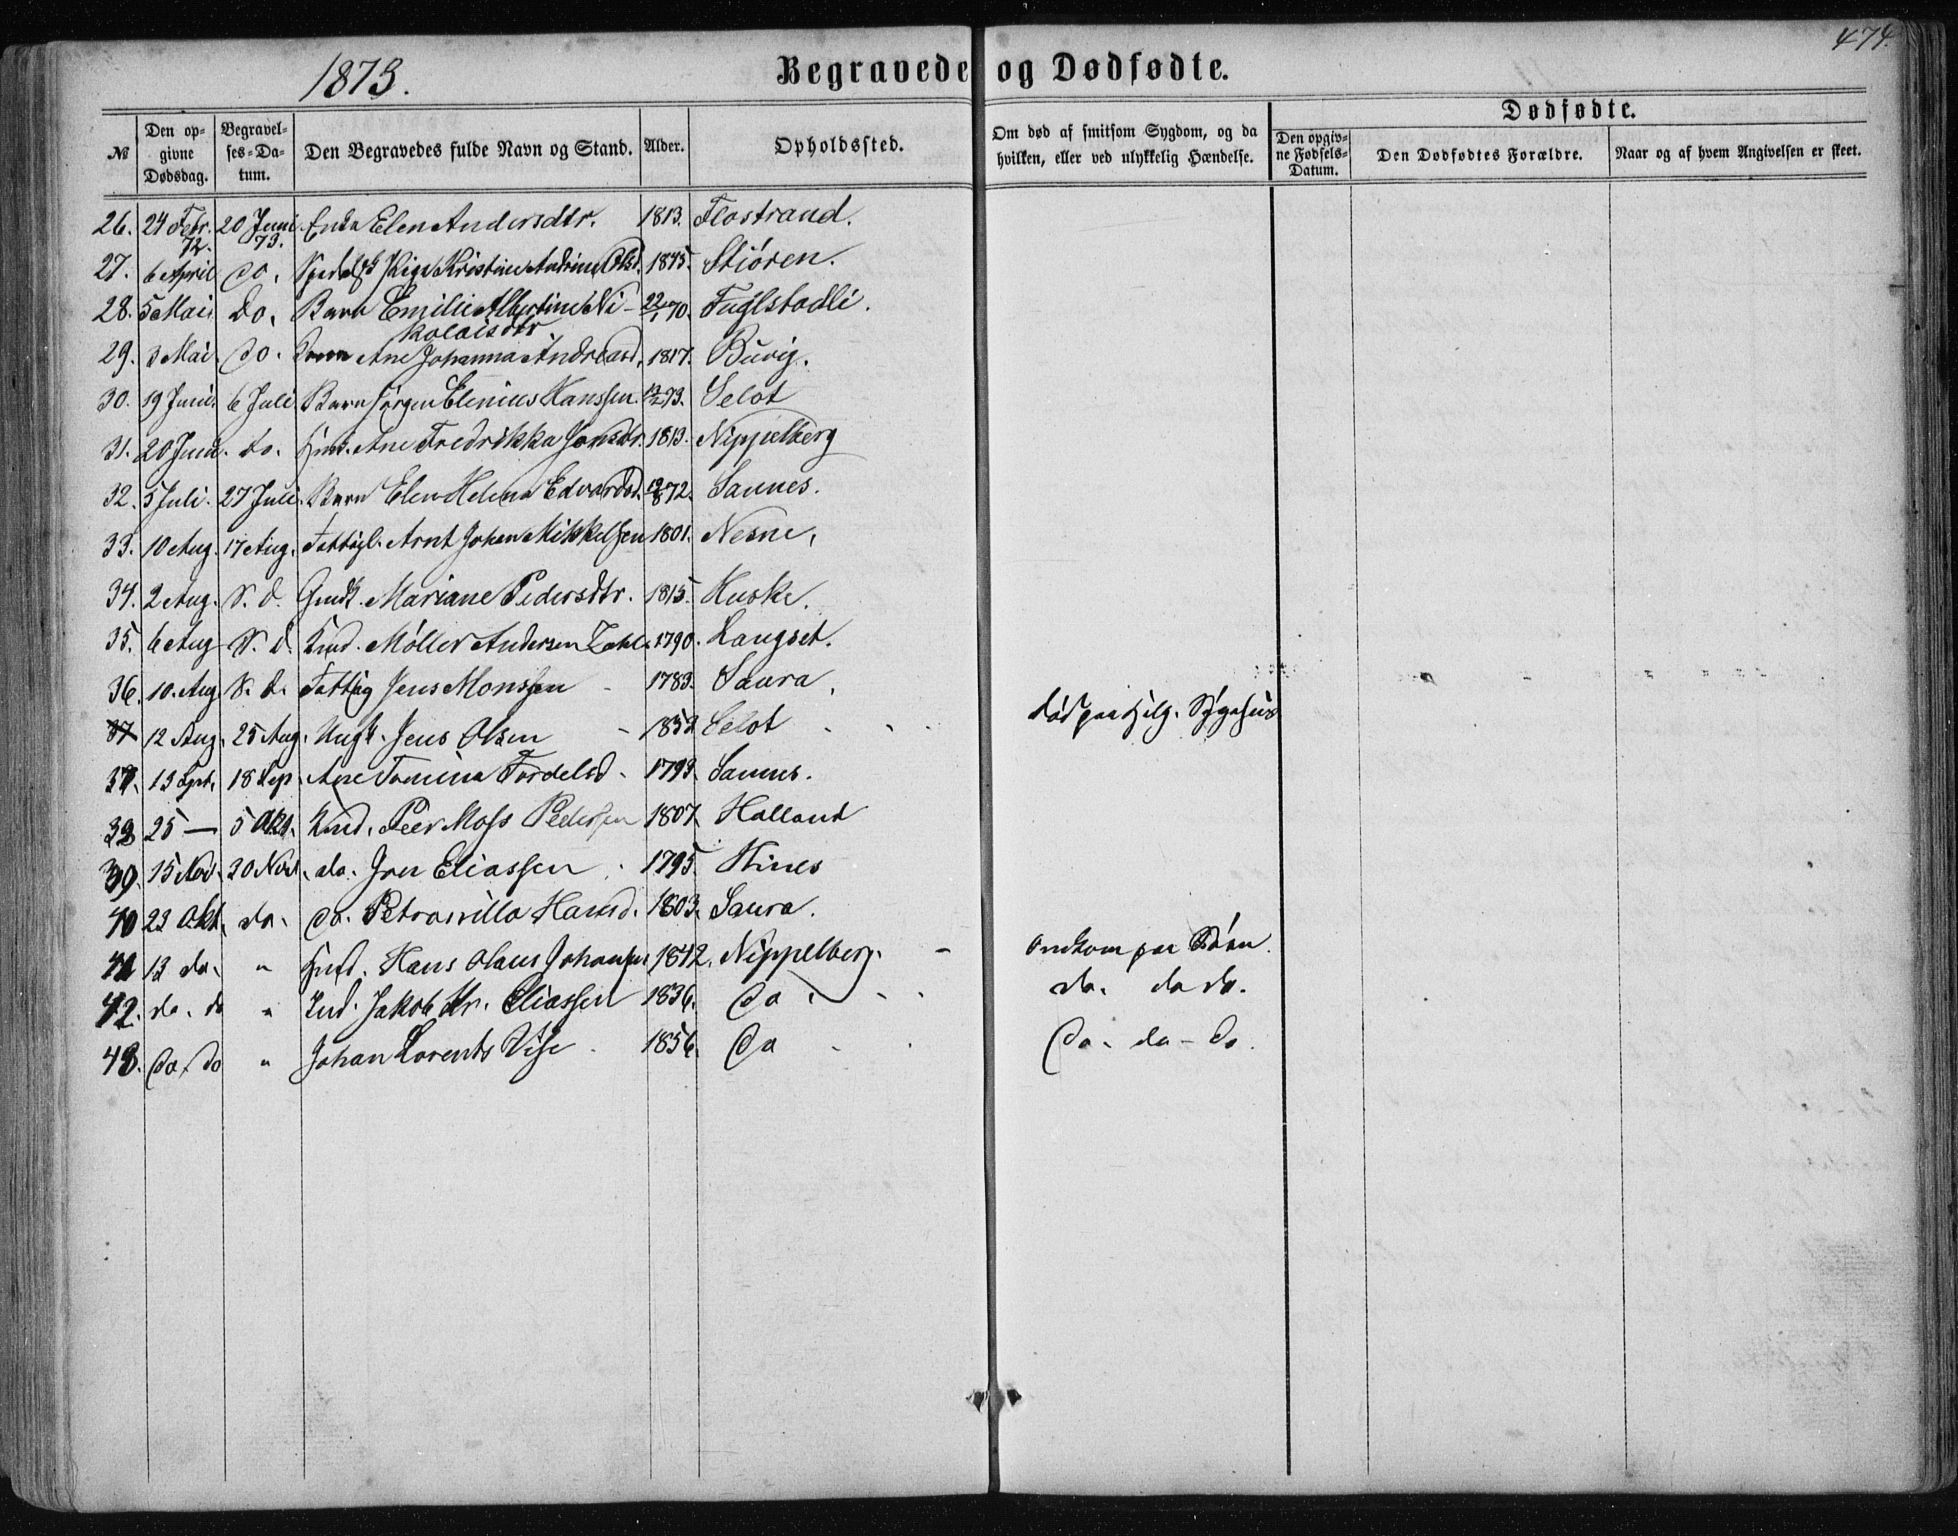 474.
1873.
Begravede og Dødfødte.
Dødfødte.
№ | Den opgivne Dødsdag. | Begravelses-Datum. | Den Begravedes fulde Navn og Stand. | Alder. | Opholdssted. | Om død af smitsom Sygdom, og da hvilken, eller ved ulykkelig Hændelse. | Den opgivne Fødsels-Datum. | Den Dødfødtes Forældre. | Naar og af hvem Angivelsen er skeet.
26. 24 Febr. 72. 20 Juni 73. Enke Elen Andersdtr. 1813. Flostrand.
27. 6 April do. Pige Kristine Andrine Stiøren.
28. 5 Mai do. Barn Emilie Albertine Ni-
kolaisdtr 22/1 70. Fuglstadli.
29. 3 Mai do. Ane Johanna Andreasd. 1817. Buvig.
30. 19 Juni 6 Juli Barn Jørgen Elenius Hanssen. 73. Selot
31. 20 Juni do. Ane Fredrikka Jonsdtr. 1813. Nippelberg
32. 5 Juli. 27 Juli. Barn Elen Helena Edvardsd. 72. Sannes.
33. 10 Aug. 17 Aug. Fattigl. Arnt Johan Mikkelsen 1801. Nesne,
34. 2 Aug. S. d. Mariane Pedersdtr. 1815. Huske.
35. 6 Aug S. d. Møller Andersen Zahl 1790. Langset.
36. 10. Aug S. d. Fattig Jens Monssen 1783. Saura.
37 12 Aug. 25 Aug. Ungk. Jens Olsen Selot død paa Sygehus
37. 13 Sept. 18 Sep. Ane Tomina Tordelsd. 1793. Sannes.
38 25 — 5 Okt. Peer Moss Pedersen 1807. Halland
39. 15 Nov. 30 Nov. do. Jon Eliassen 1795. Hines
40 23 Okt. do. do. Petronilla Hansd. 1803. Saura.
41 13 do. " Hans Olaus Johansen 1842. Nippelberg. omkom paa Søen.
42. do. do " Jakob Kr. Eliassen 1836. do do. do do.
43. do. do " Johan Lorents 1856. do do. do - do.